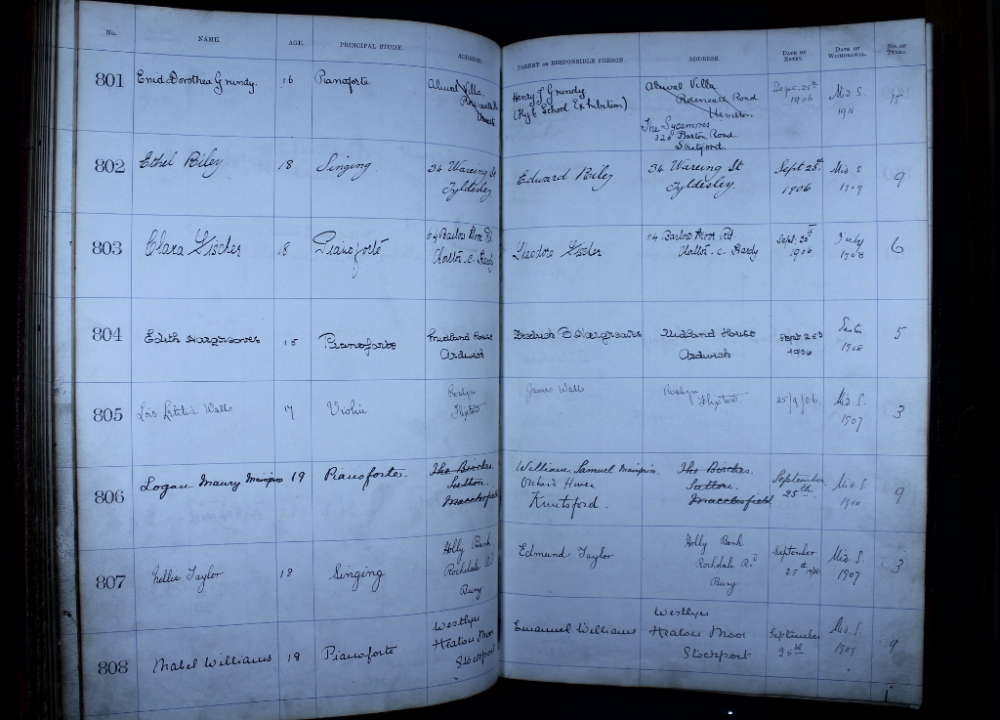 No. NAME. AGE. PRINCIPAL STUDY. ADDRESS. PARENT OR RESPONSIBLE PERSON. ADDRESS. DATE OF ENTRY. DATE OF WITHDRAWAL. No. OF TERMS.
801 Enid Dorothea Grundy. 16 Pianoforte Villa Henry J Grundy Villa Sept. 25th Mid S. 15
(High School Exhibition) Road 1906 1911
The Sycamores
326 Barton Road
Stretford
802 Ethel Biley 18 Singing 34 Wareing St Edward Biley 34 Wareing St Sept 25th Mid S 9
Tyldesley Tyldesley. 1906 1909
803 Clara Fischer 18 Pianoforte 64 Barlow Moor Rd Theodore Fischer 64 Barlow Moor Rd Sept. 25th July 6
Chorlton. c. Hardy Chorlton. c. Hardy 1906 1908
804 Edith Hargreaves 15 Pianoforte Midland House Frederick B Hargreaves Midland House Sept 25th 5
Ardwick Ardwick 1906 1908
805 Lois Letitia Walls 17 Violin Roslyn James Walls Roslyn 25/9/06 Mid. S. 3
Flixton Flixton 1907
806 Logan Maury 19 Pianoforte. The Birches. William Samuel The Birches. September Mid S. 9
Sutton. Orchard Sutton. 25th
Macclesfield Knutsford. Macclesfield
807 Nellie Taylor 18 Singing Holly Bank Edmund Taylor Holly Bank September Mid S. 3
Rochdale Rd Rochdale Rd 25th 1907
Bury Bury
808 Mabel Williams 18 Pianoforte Westlyn Emanuel Williams Westlyn September Mid S. 9
Heaton Moor Heaton Moor 25th 1909
Stockport Stockport